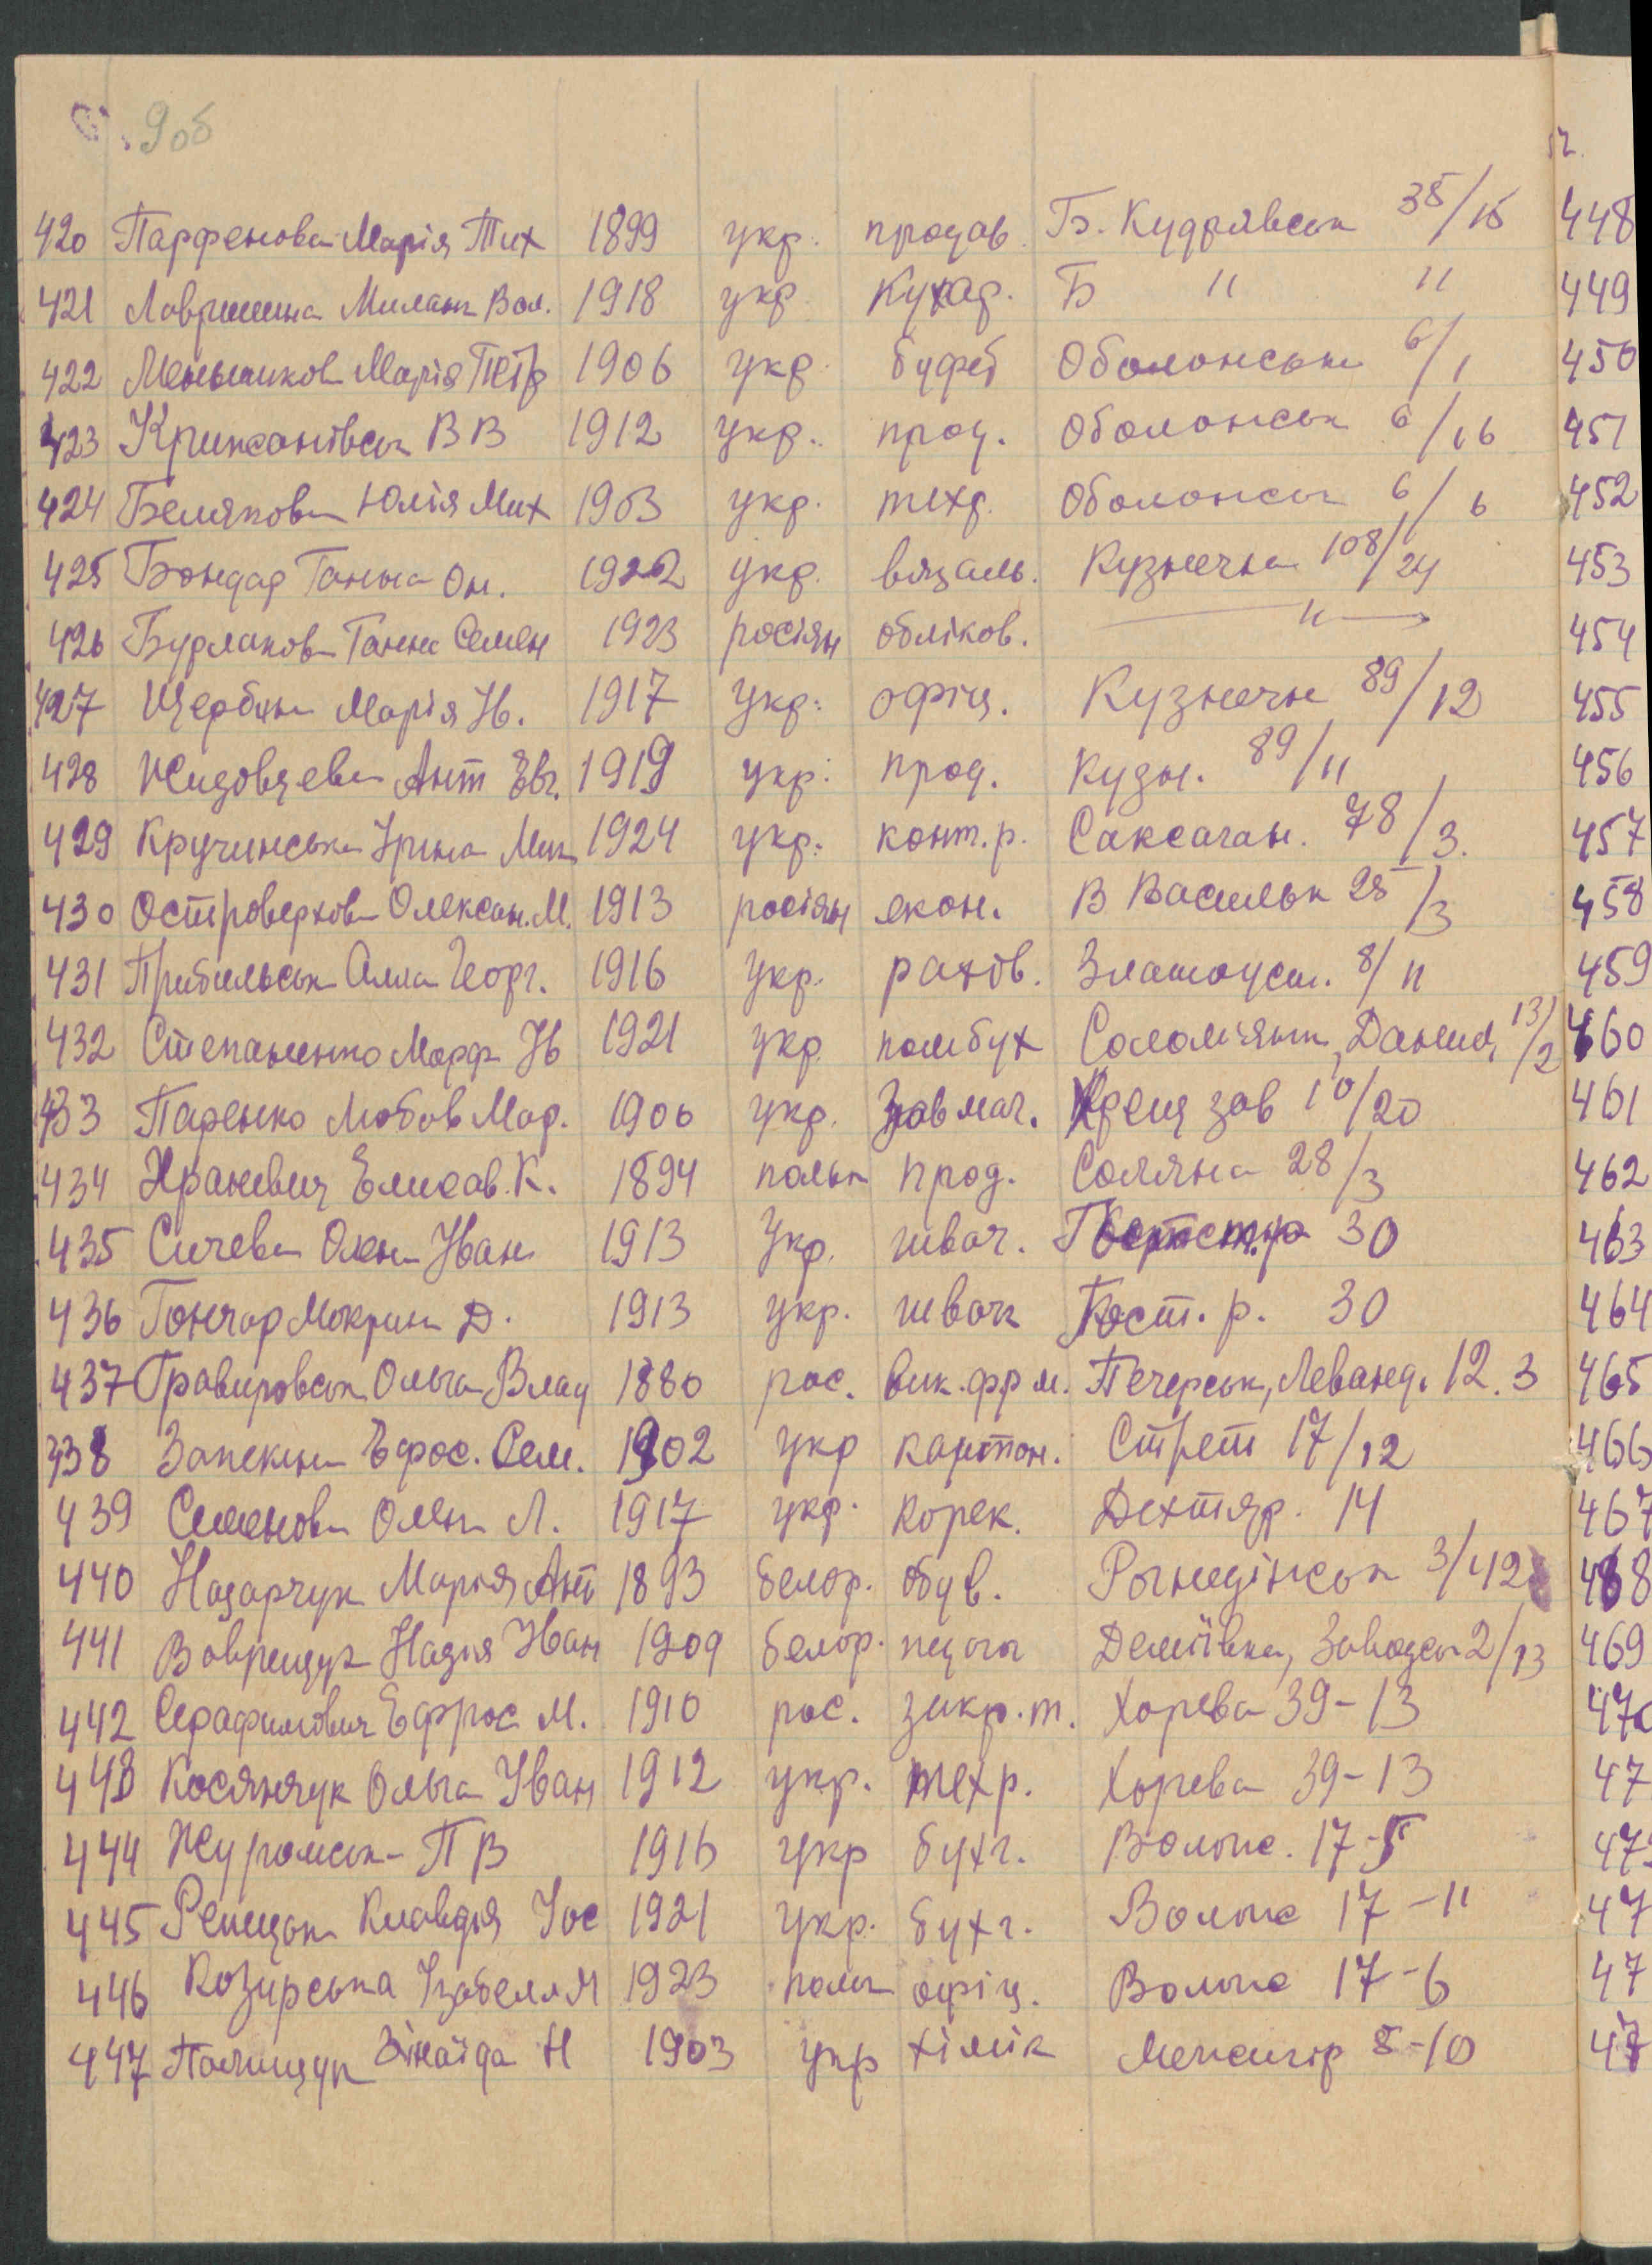 9об
420 Парфенова Марія Тих 1899 укр. продав. Б. Кудрявськ 35/15
421 Лавришина Милан Вол. 1918 укр кухар. Б " "
422 Меньшиков Марія Петр 1906 укр. буфет Оболонськ 6/1
423 Крижанівськ В В 1912 укр. прод. Оболонськ 6/16
424 Белякова Юлія Мих 1903 укр. техр. Оболонськ 6/6
425 Бондар Ганна Он. 1922 укр. вязаль. Кузнечна 108/24
426 Бурлакова Ганна Семен 1923 росіян обліков. — " —
427 Щербин Марія Ів. 1917 укр. офіц. Кузнечн 89/12
428 Жидовцева Ант Евг. 1919 укр. прод. Кузн. 89/11
429 Кручинська Ірина Мик 1924 укр. конт.р. Саксаган. 78/3.
430 Островерхова Олексан. М. 1913 росіян екон. В Васильк 25/3
431 Прибильськ Алла Георг. 1916 укр. рахів. Златоуст. 8/11
432 Степаненко Марф Ів 1921 укр. помбух Солом'янк, Данил, 13/2
433 Паренко Любов Мар. 1906 укр. зав маг. Крещ зав 10/20
434 Храневич Елисав. К. 1894 польк прод. Соляна 28/3
435 Сичева Олена Іван 1913 укр. швач. 30
436 Гончар Мокрин Д. 1913 укр. швачк Кост. р. 30
437 Гравировськ Ольга Влад 1880 рос. вик. фр м. Печерськ, Леванд. 12. 3
438 Запекин Ефрос. Сем. 1902 укр картон. Стрет 17/12
439 Семенова Олен Л. 1917 укр. корек. Дехтяр. 14
440 Назарчук Марія Ант 1893 белор. обув. Рогнедінськ 3/42
441 Ваврещук Надія Іван 1909 белор. Деміївка, Заводськ 2/13
442 Серафимович Ефрос М. 1910 рос. закр. т. Хорева 39-13
443 Косянчук Ольга Іван 1912 укр. техр. Хорева 39-13
444 Журомськ П В 1916 укр бухг. Волоськ. 17-5
445 Репецьк Клавдія Йос 1921 укр. бухг. Волоськ 17-11
446 Козирська Ізабелла 1923 польк офіц. Волоськ 17-6
447 Полищук Зінаїда Н 1903 укр хімік Межигір 5-10
448
449
450
451
452
453
454
455
456
457
458
459
460
461
462
463
464
465
466
467
468
469
470
47
47
47
47
47